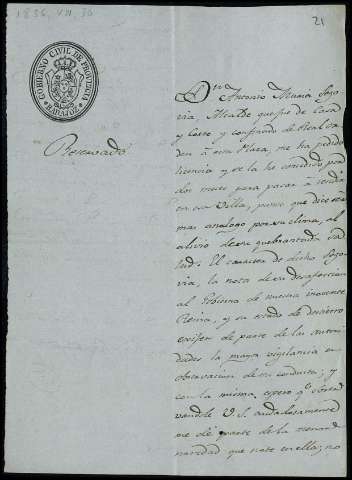 1836, VII, 30
21
GOBIERNO CIVIL DE PROVINCIA
BADAJOZ
Reservado
Dn. Antonio Maria Sego
via, Alcalde que fue de Casa
y Corte y confinado de Real or
den á esta Plaza, me ha pedido
licencia y se la he concedido por
dos meses para pasar a residir
en esa Villa, punto que dice ser
mas analogo por su clima, al
alivio de su quebrantada sa
lud. El caracter de dicho Sego
via, la nota de su desafeccion
al Gobierno de nuestra inocente
Reina, y su estado de destierro
exigen de parte de las autori
dades la mayor vigilancia en
observacion de su conducta; y
con la misma espero qe. obser
vandole V.S. cuidadosamente
me dé parte de la menor
novedad que note en ella; no